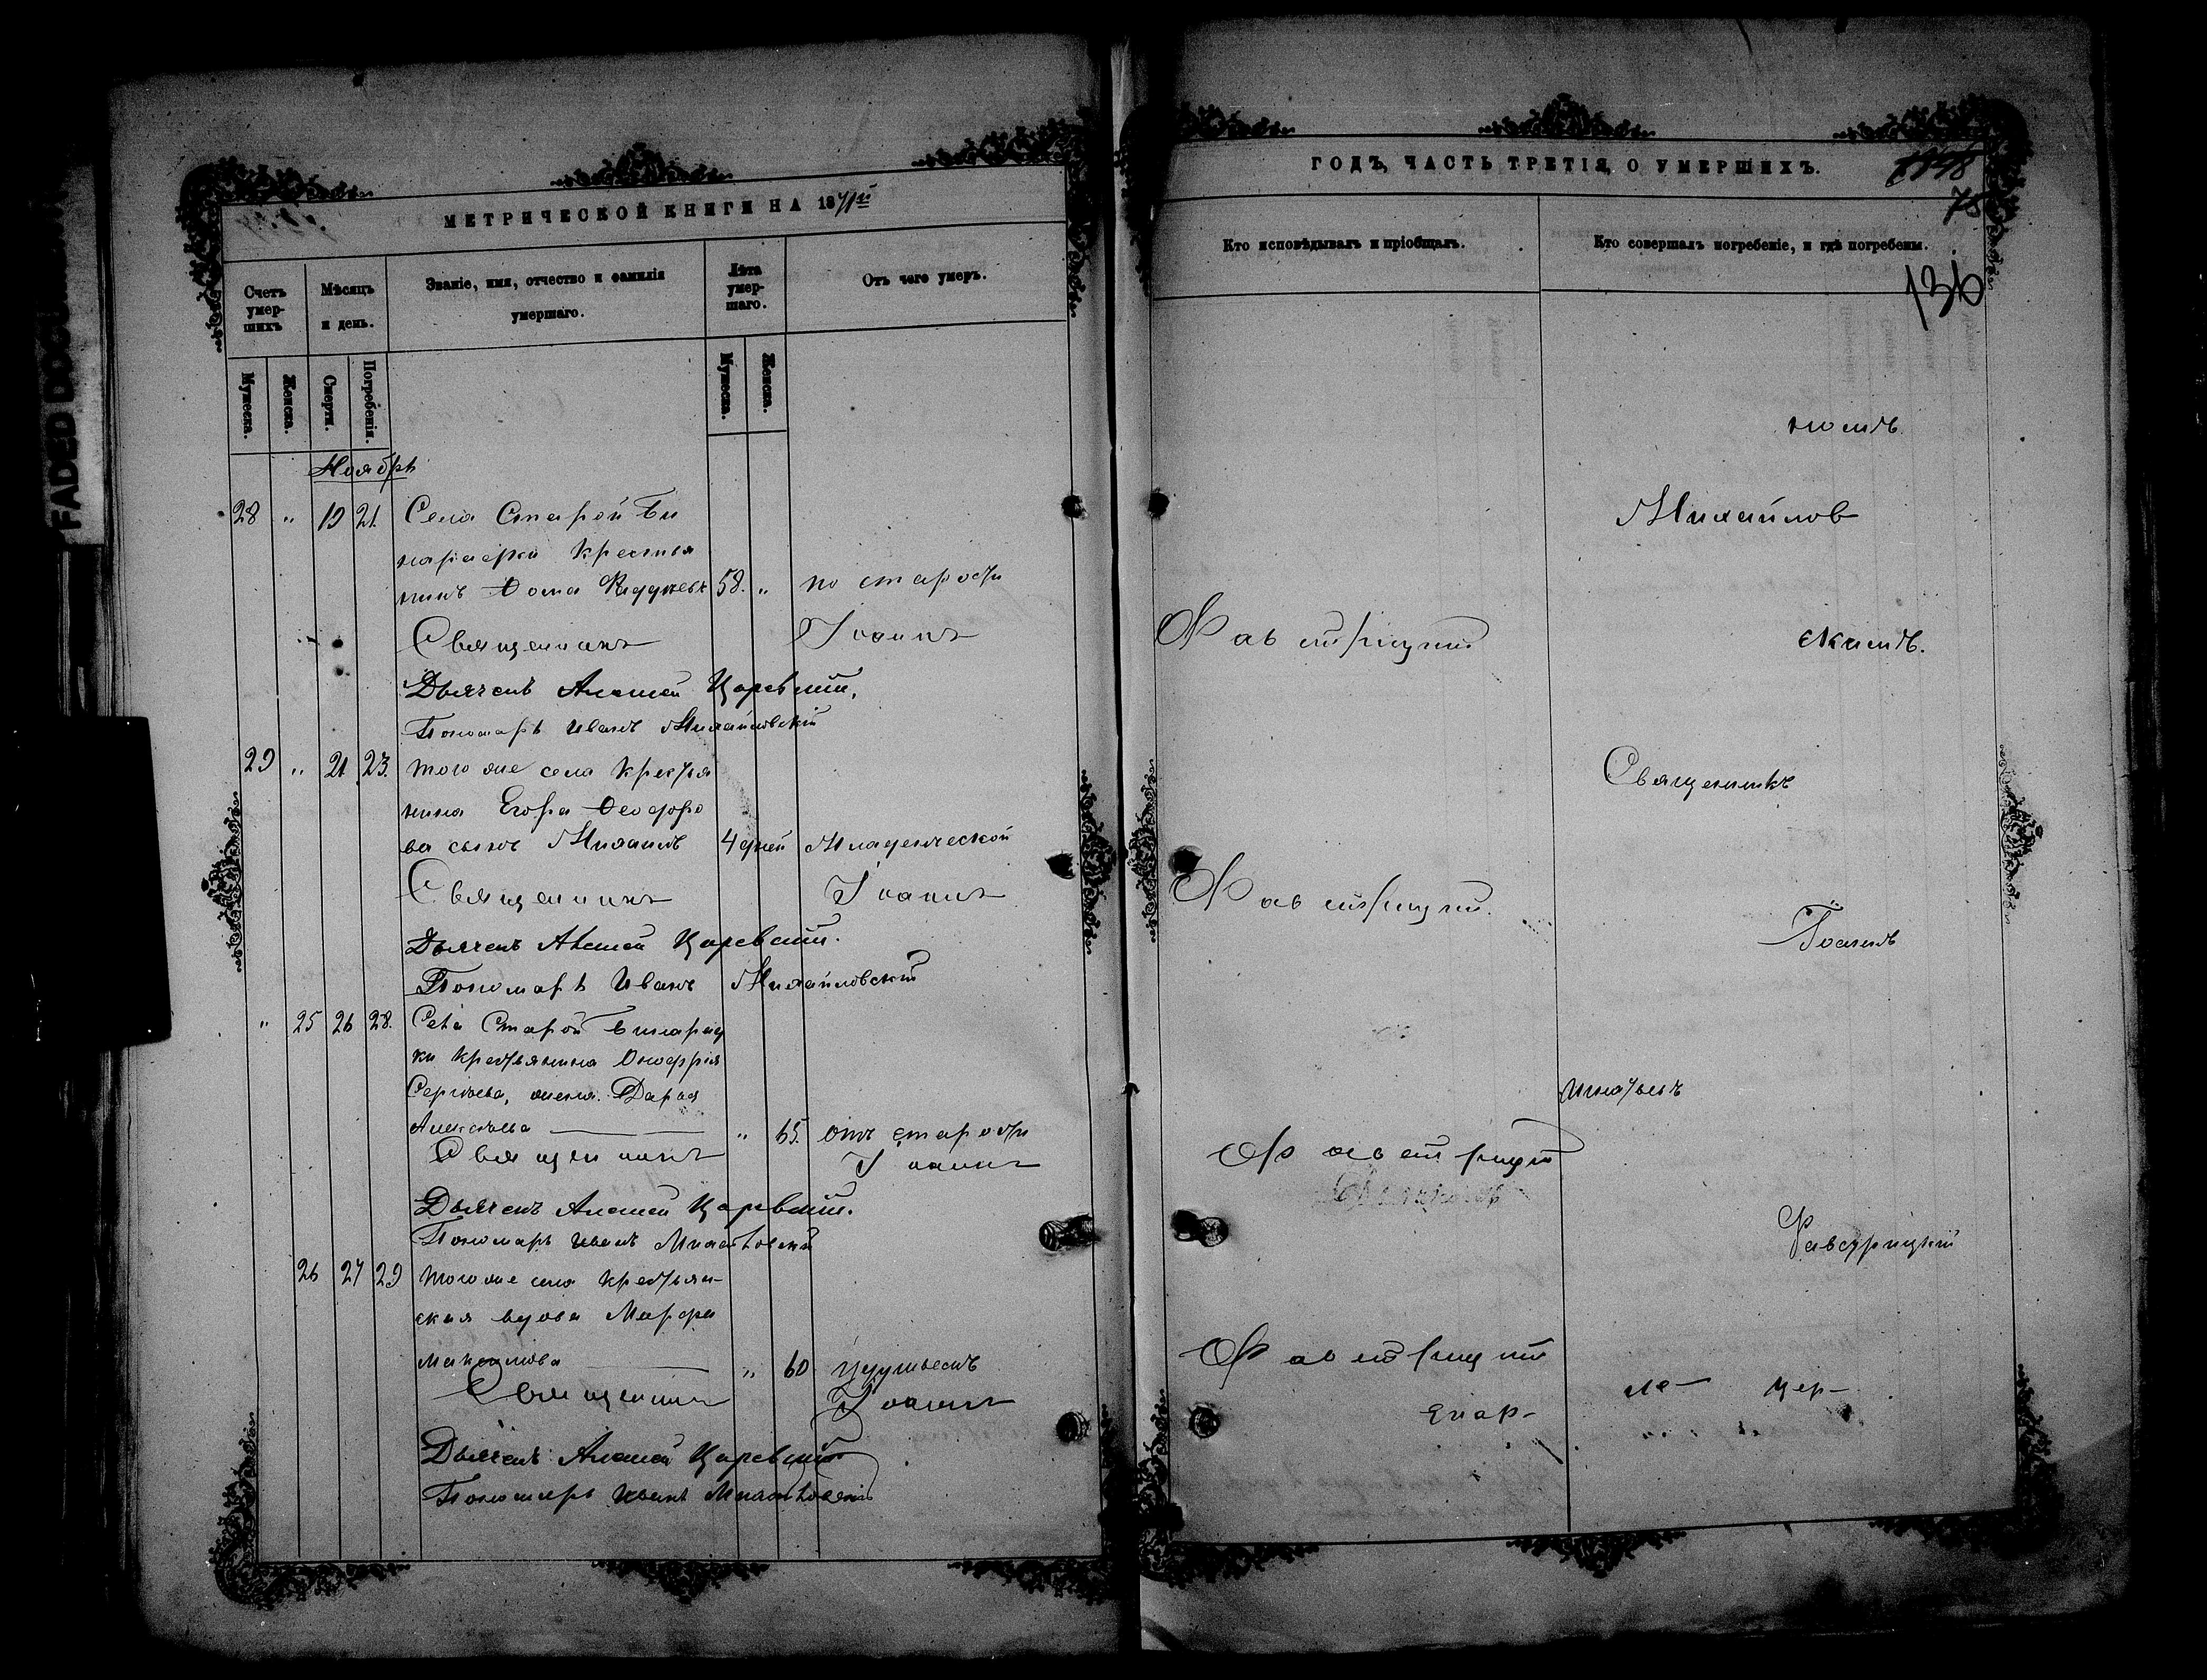 МЕТРИЧЕСКОЙ КНИГИ НА 1871й
Счетъ умер-шихъ
Мѣсяцъ и день.
Званіе, имя, отчество и фамилія умершаго.
Лѣта умер-шаго.
Отъ чего умеръ.
Мужеска.
Женска.
Смерти.
Погребенія.
Мужеска.
Женска.
Ноябрь
28 „ 19 21. Села Старой Би
крестья
нинъ Ѳома 58. „ по старости
Священникъ Іоаннъ
Дьячекъ Алексей Царевскій.
Пономарь Иванъ Михайловскій
29 „ 21 23. того же села крестья
нина Егора Ѳеодоро
ва сынъ Михаилъ 4 дней Младенческой
Священникъ Іоаннъ
Дьячекъ Алексей Царевскій.
Пономарь Иванъ Михайловский
„ 25 26 28. Села Старой
ки крестьянина Онофрія
Сергѣева, жена Дарья
Алексѣева „ 65. отъ старости
Священникъ Іоаннъ
Дьячекъ Алексей Царевскій.
Пономарь Иванъ Михайловский
26 27 29 того же села крестьян-
ская вдова Марфа
Максимова „ 60 удушьемъ
Священникъ Іоаннъ
Дьячекъ Алексей Царевскій
Пономарь Иванъ Михайловскій
ГОДЪ, ЧАСТЬ ТРЕТІЯ, О УМЕРШИХЪ.
78
136
Кто исповѣдывалъ и пріобщалъ.
Кто совершалъ погребеніе, и гдѣ погребены.
Михайлов
Фавстрицкій
Священникъ
Фавстрицкій.
Іоаннъ
Фавстрицкій
Фавстрицкій
Фавстрицкій
Епар-
цер-